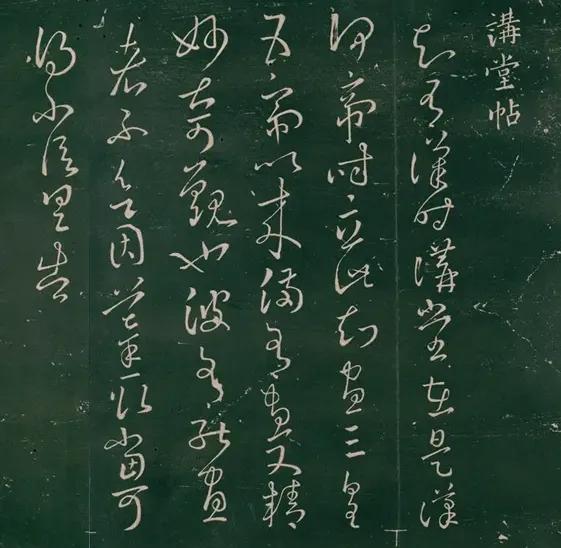 講堂帖
知有漢時講堂在是漢
何帝時立此知畫三皇
五帝以來備有畫又精
妙甚可觀也彼有能畫
者不欲因摹取當可
得不信具告